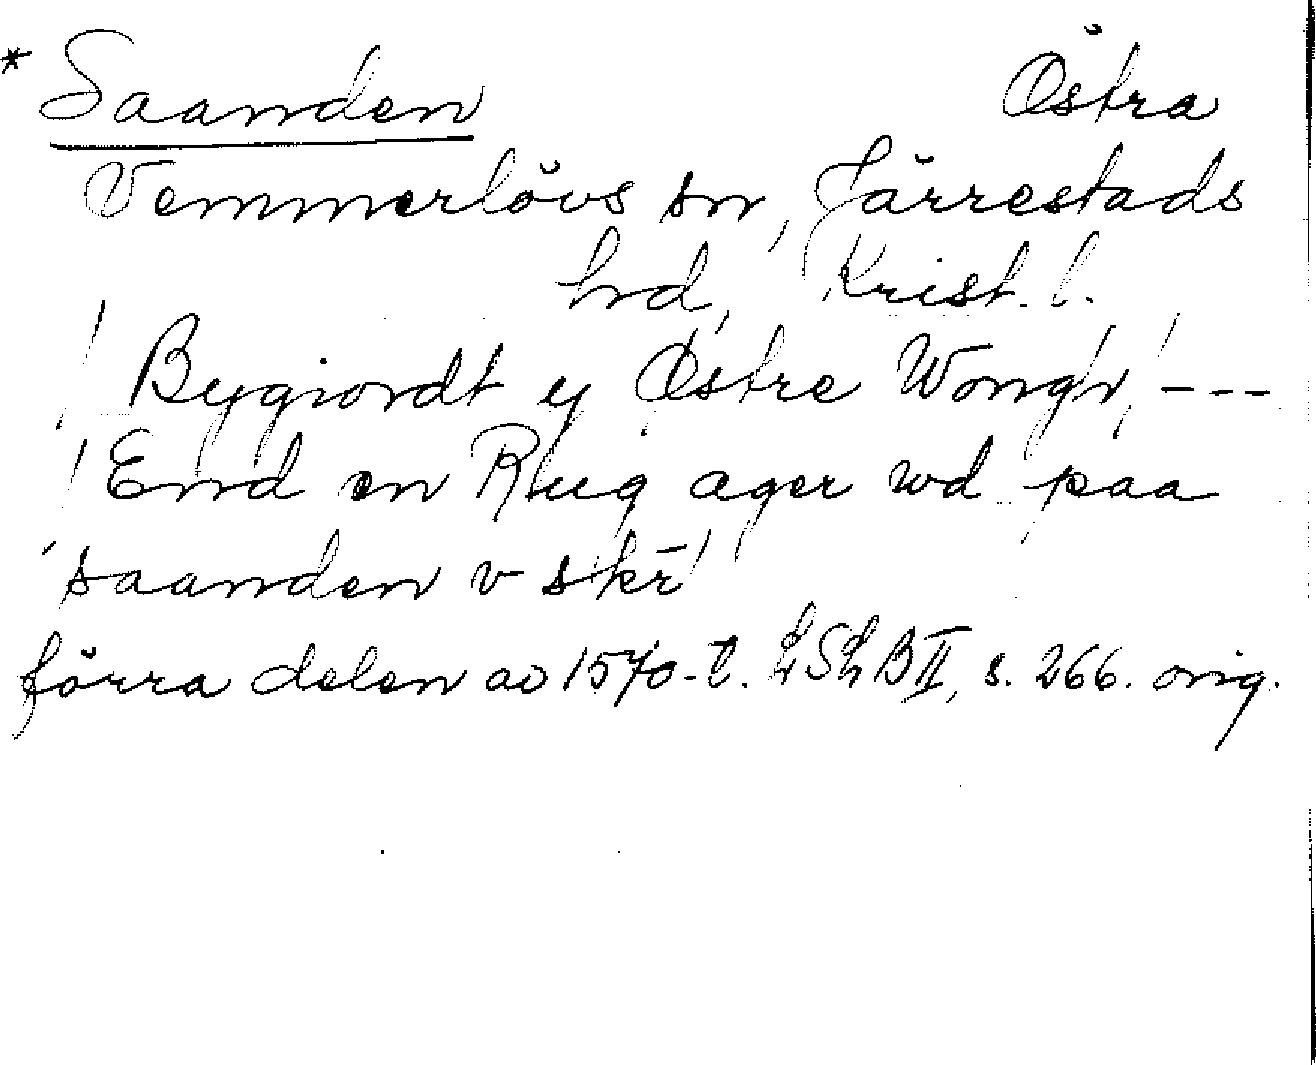 * Saanden Östra
Vemmerlövs sn, Järrestads
hrd, Krist. l.
/ Bygiordt y Østre Wongh, / ---
/ End en Rug ager wd paa
saanden v skr̄ /
förra delen av 1570-t. LSLB II, s. 266. orig.